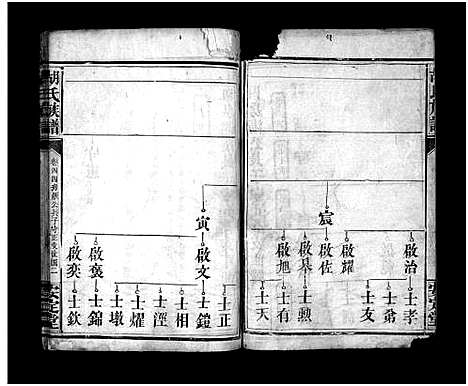 宸
啟治
啟耀
啟佐
啟基
啟旭
士孝
士弟
士友
士有
士天
寅
啟文
啟褒
啟奕
士正
士鎧
士相
士涇
士燿
士墩
士錦
士欽
胡氏族譜